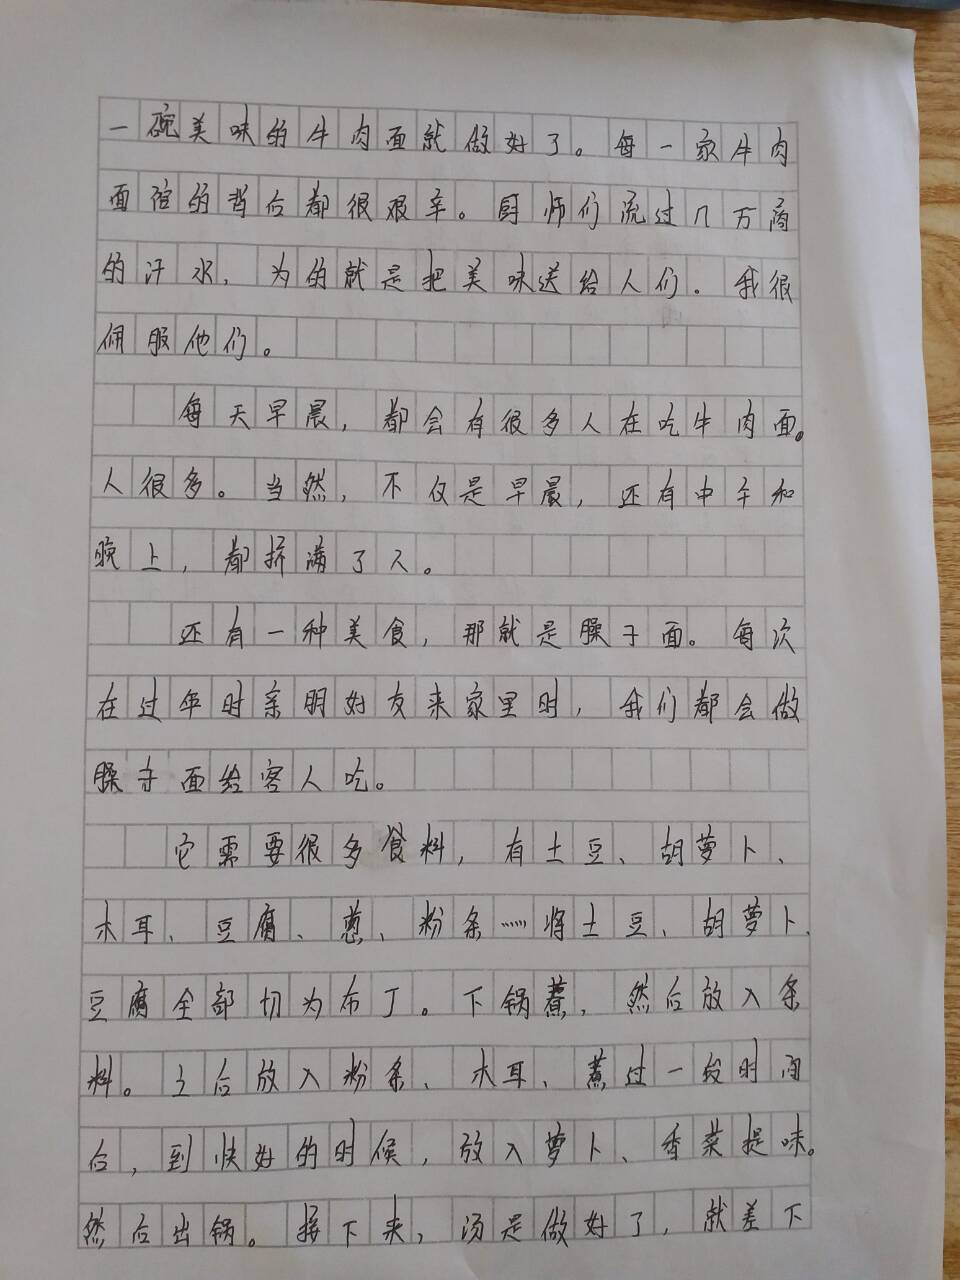 一碗美味的牛肉面就做好了。每一家牛肉
面馆的背后都很艰辛。厨师们流过几万滴
的汗水，为的就是把美味送给人们。我很
佩服他们。
每天早晨，都会有很多人在吃牛肉面。
人很多。当然，不仅是早晨，还有中午和
晚上，都挤满了人。
还有一种美食，那就是臊子面。每次
在过年时亲朋好友来家里时，我们都会做
臊子面给客人吃。
它需要很多食料，有土豆、胡萝卜、
木耳、豆腐、葱、粉条……将土豆、胡萝卜、
豆腐全部切为布丁。下锅煮，然后放入条
料。之后放入粉条、木耳、煮过一段时间
后，到快好的时候，放入萝卜、香菜提味。
然后出锅。接下来，汤是做好了，就差下